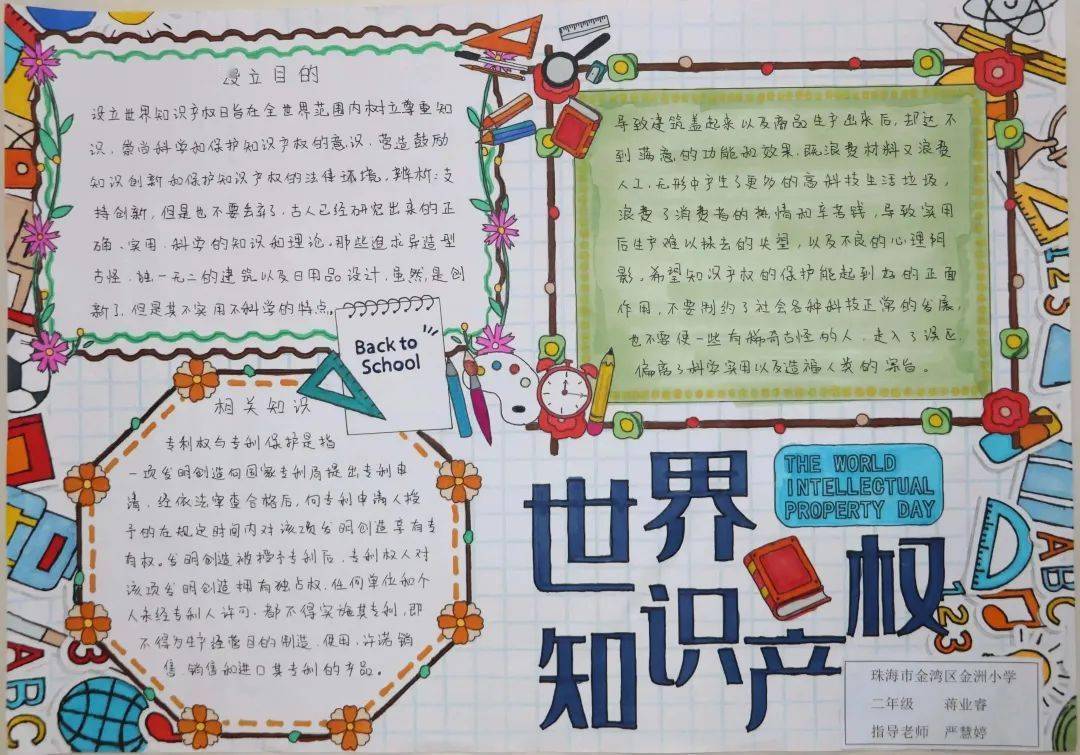 设立目的
设立世界知识产权日旨在全世界范围内树立尊重知
识，崇尚科学和保护知识产权的意识，营造鼓励
知识创新和保护知识产权的法律环境。辨析：支
持创新，但是也不要丢弃了，古人已经研究出来的正
确、实用、科学的知识和理论。那些追求异造型
古怪、独一无二的建筑以及日用品设计，虽然，是创
新了，但是其不实用不科学的特点。
导致建筑盖起来以及商品生产出来后，却达不
到满意的功能和效果。既浪费材料又浪费
人工，无形中产生了更多的高科技生活垃圾，
浪费了消费者的热情和辛苦钱，导致实用
后生产难以抹去的失望，以及不良的心理阴
影。希望知识产权的保护能起到好的正面
作用，不要制约了社会各种科技正常的发展，
也不要使一些有稀奇古怪的人，走入了误区，
偏离了科学实用以及造福人类的宗旨。
Back to
School
相关知识
专利权与专利保护是指
一项发明创造向国家专利局提出专利申
请，经依法审查合格后，向专利申请人授
予的在规定时间内对该项发明创造享有专
有权。发明创造被授予专利后，专利权人对
该项发明创造拥有独占权，任何单位和个
人未经专利人许可，都不得实施其专利，即
不得为生产经营目的制造、使用、许诺销
售、销售和进口其专利的产品。
THE WORLD
INTELLECTUAL
PROPERTY DAY
世界
知识产权
珠海市金湾区金洲小学
二年级 蒋业睿
指导老师 严慧婷
ABC
123
ABC
123